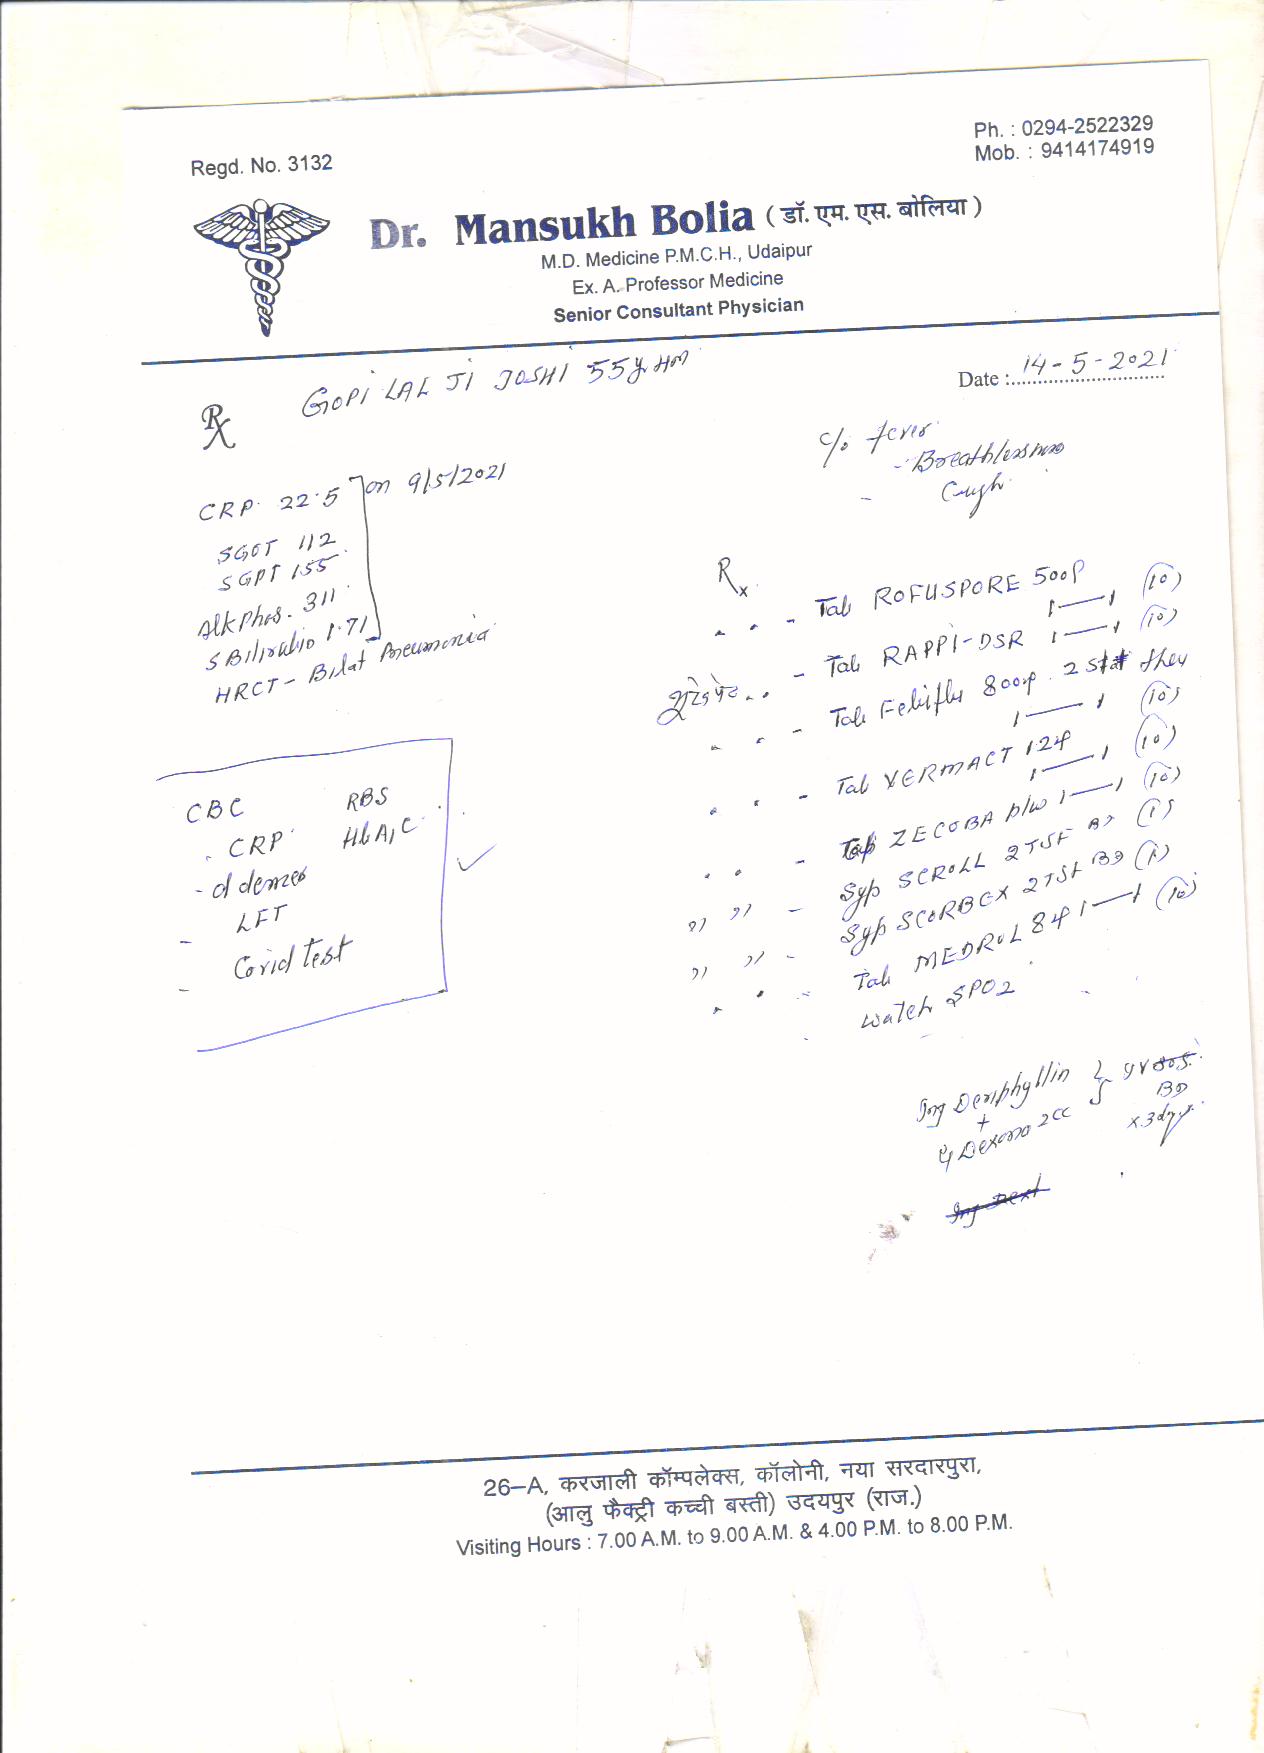 Regd. No. 3132
Ph. : 0294-2522329
Mob. : 9414174919
Dr. Mansukh Bolia ( डॉ. एम. एस. बोलिया )
M.D. Medicine P.M.C.H., Udaipur
Ex. A. Professor Medicine
Senior Consultant Physician
Date : 14-5-2021
GOPI LAL JI JOSHI 55y
Rx
c/o fever
- Breathlessness
- Cough
CRP 22.5 on 9/5/2021
SGOT 112
SGPT 155
Alk Phos. 311
S Bilirubin 1.71
HRCT - Bilat Pneumonia
CBC RBS
CRP HbA1C
- d dimer
- LFT
- Covid test
Rx
- Tab ROFUSPORE 500
1—1 (10)
- Tab RAPPI-DSR 1—1 (10)
- Tab 800 2 stat
1—1 (10)
- Tab VERMACT 12
1—1 (10)
- Tab ZECOBA 1—1 (10)
- Syp SCROLL 2 TSF (1)
- Syp SCORBEX 2 TSF BD (1)
- Tab MEDROL 8 1—1 (10)
watch SPO2
Inj Deriphyllin
+
Dexona 2cc
BD
x 3 days
26–A, करजाली कॉम्पलेक्स, कॉलोनी, नया सरदारपुरा,
(आलु फैक्ट्री कच्ची बस्ती) उदयपुर (राज.)
Visiting Hours : 7.00 A.M. to 9.00 A.M. & 4.00 P.M. to 8.00 P.M.